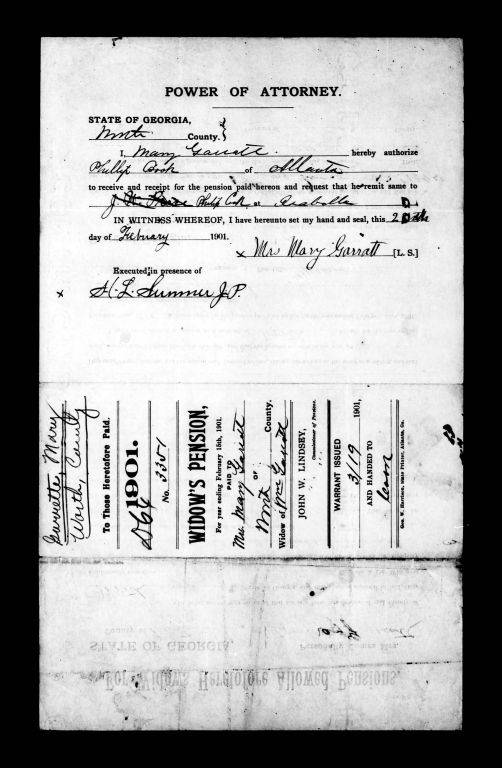 POWER OF ATTORNEY.
STATE OF GEORGIA,
Worth County.
I, Mary Garratt hereby authorize
Phillip Cook of Atlanta
to receive and receipt for the pension paid hereon and request that he remit same to
Philip Cook at
IN WITNESS WHEREOF, I have hereunto set my hand and seal, this
day of February 1901.
x Mrs Mary Garratt [L. S.]
Executed in presence of
x H. L. Sumner J.P.
Garrette, Mary
Worth, County
To Those Heretofore Paid.
1901.
No. 3351
WIDOW'S PENSION,
For year ending February 15th, 1901.
PAID
Mrs. Mary Garratt
OF
Worth County.
Widow of Wm Garratt
JOHN W. LINDSEY,
Commissioner of Pensions.
WARRANT ISSUED
3/19 1901,
AND HANDED TO
Geo. W. Harrison, State Printer, Atlanta, Ga.
STATE OF GEORGIA,
Personally Comes Mrs.
For Widows Heretofore Allowed Pensions.